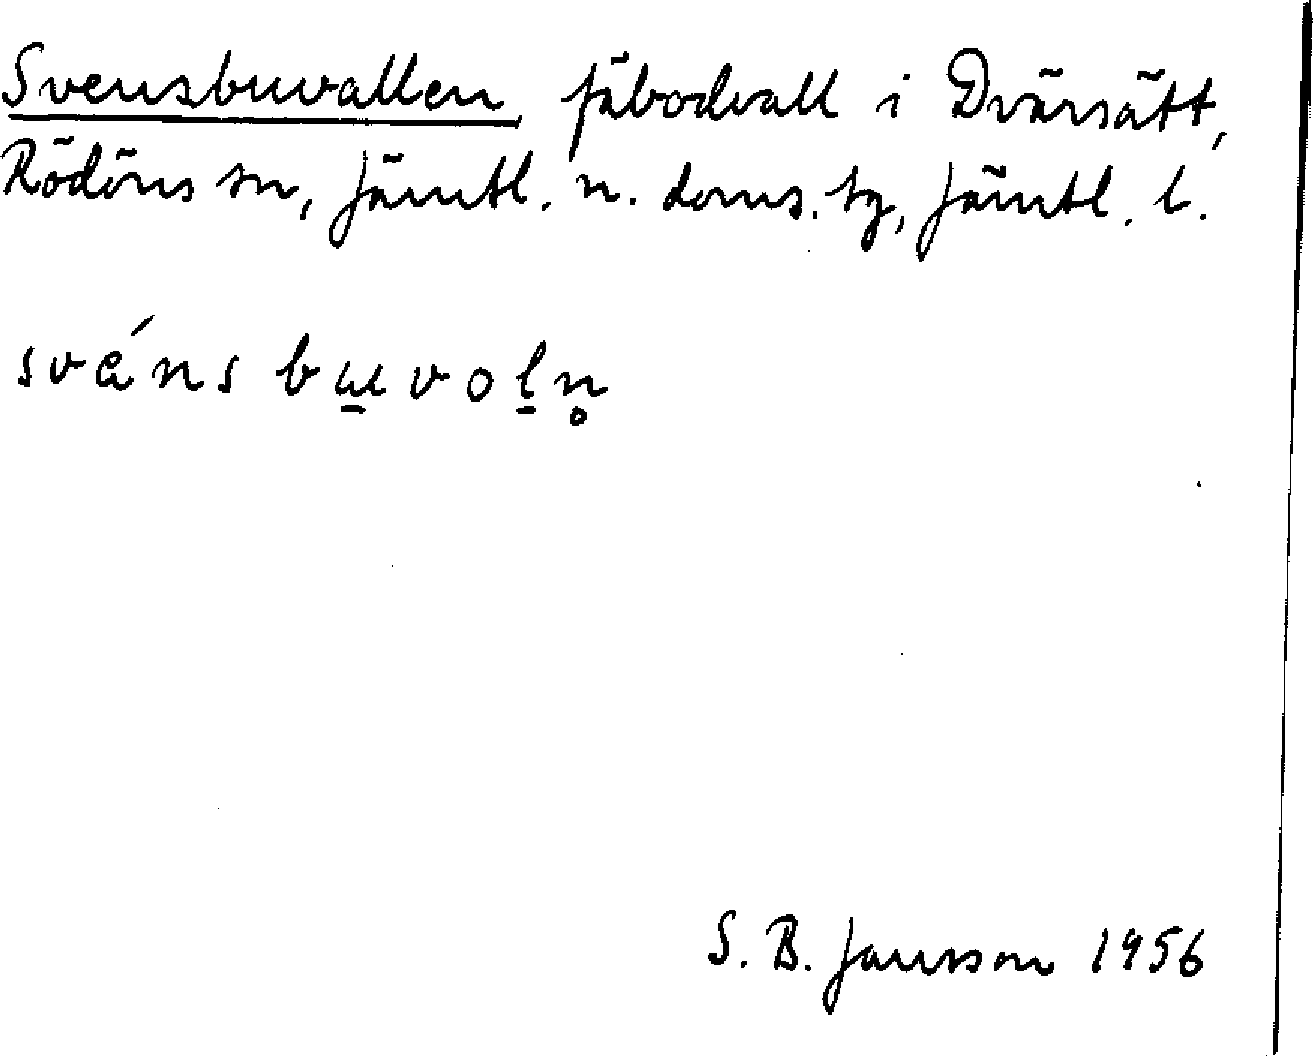 Svensbuvallen, fäbodvall i Dvärsätt,
Rödöns sn, Jämtl. n. doms. tg, Jämtl. l.
sváns bu̲vol̲n̥
S. B. Jansson 1956